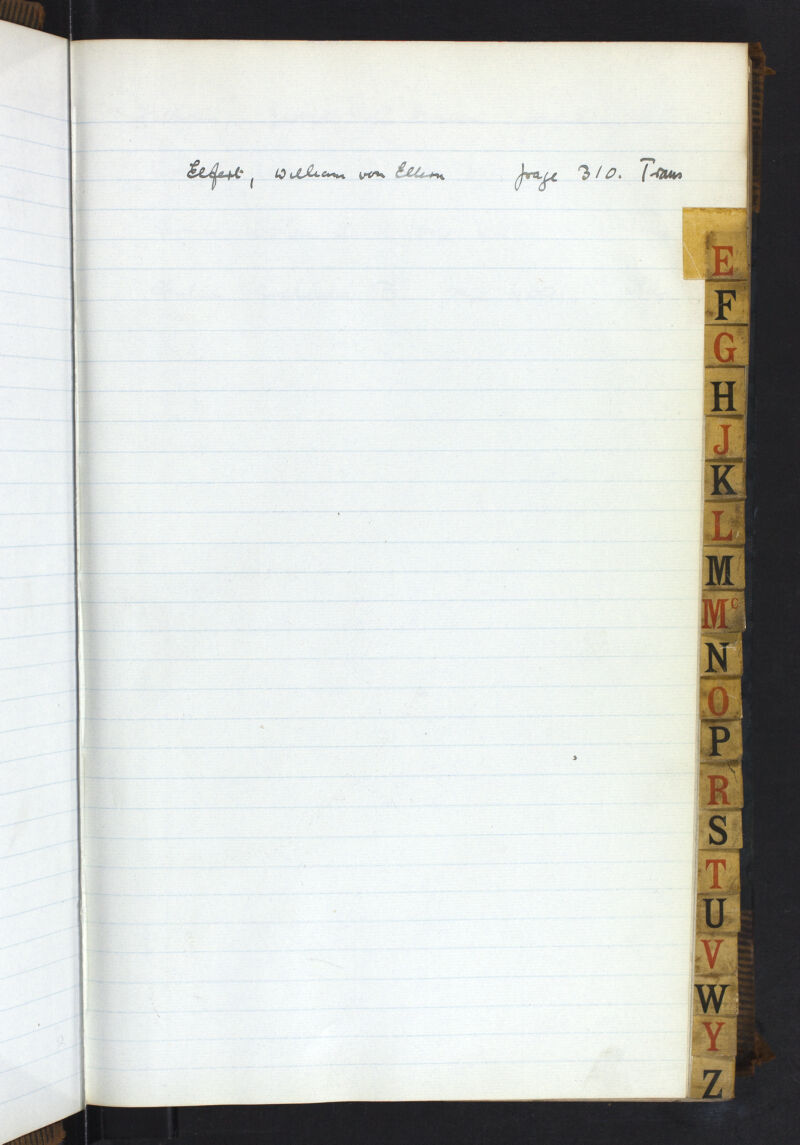 Elfert, William von Eltern page 310. Trans
E
F
G
H
J
K
L
M
Mc
N
O
P
R
S
T
U
V
W
Y
Z